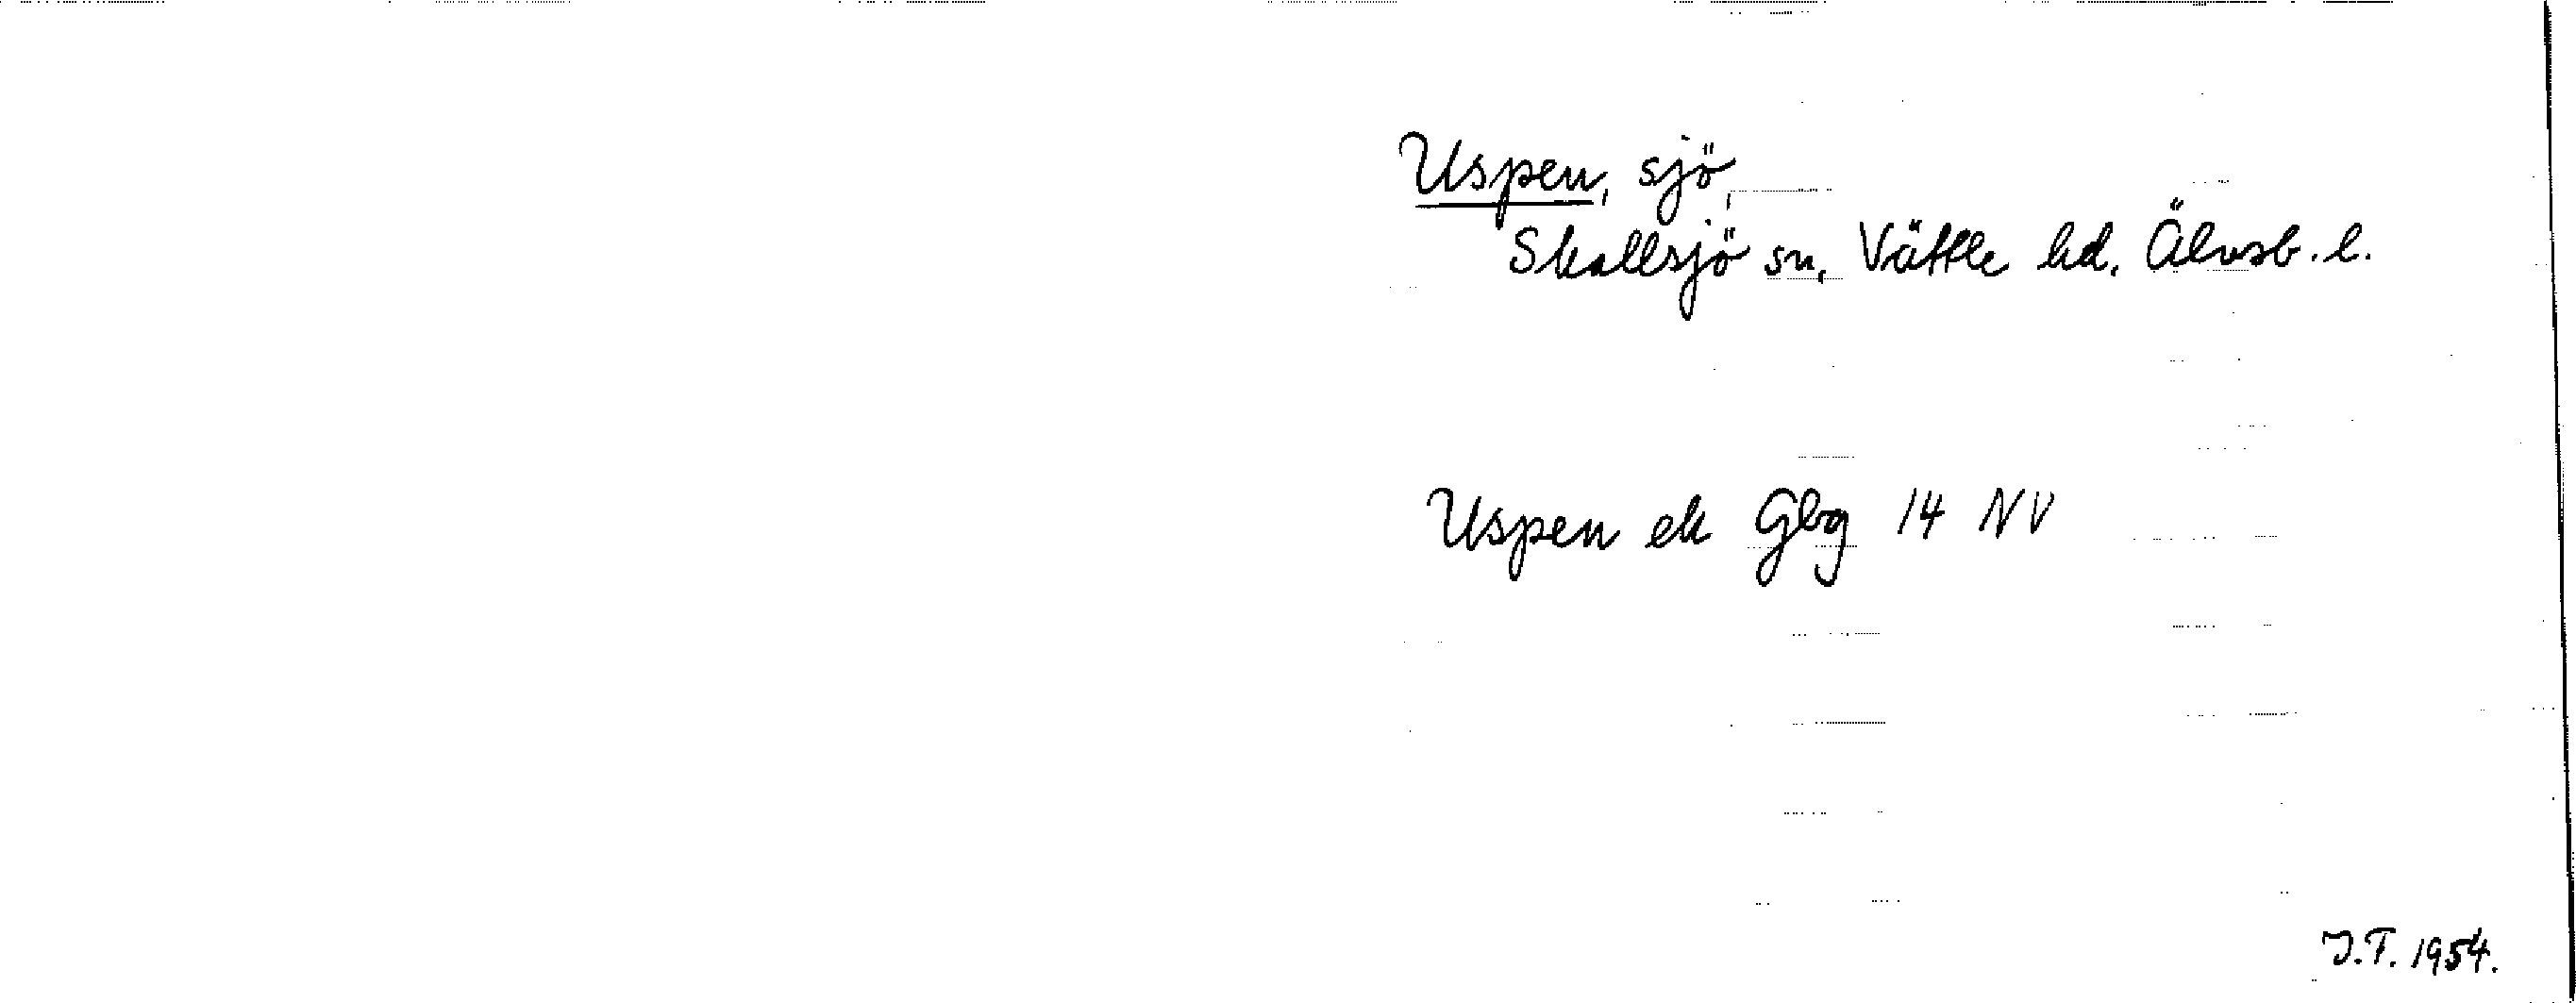 Uspen, sjö,
Skallsjö sn, Vättle hd, Älvsb. l.
Uspen ek Gbg 14 NV
J.T. 1954.